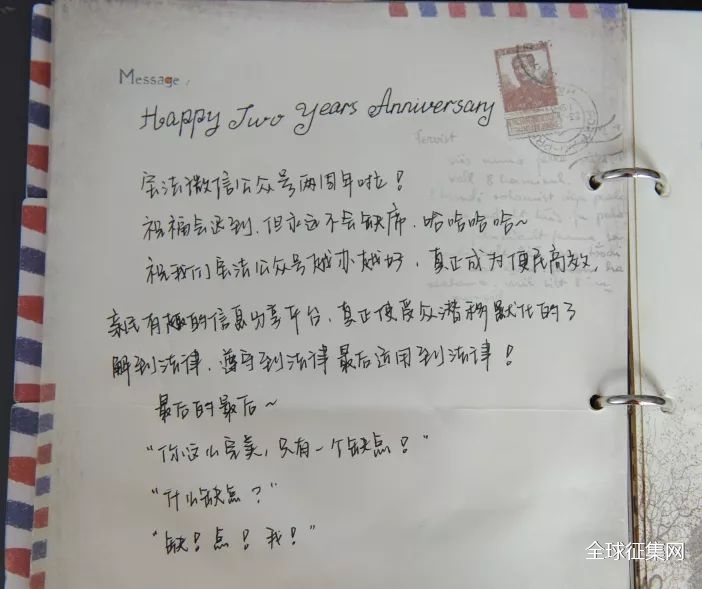 Message,
Happy Two Years Anniversary
宝法微信公众号两周年啦!
祝福会迟到,但永远不会缺席,哈哈哈哈~
祝我们宝法公众号越办越好,真正成为便民高效,
亲民有趣的信息分享平台,真正使受众潜移默化的了
解到法律,遵守到法律最后运用到法律!
最后的最后~
"你这么完美,只有一个缺点!"
"什么缺点?"
"缺!点!我!"
全球征集网